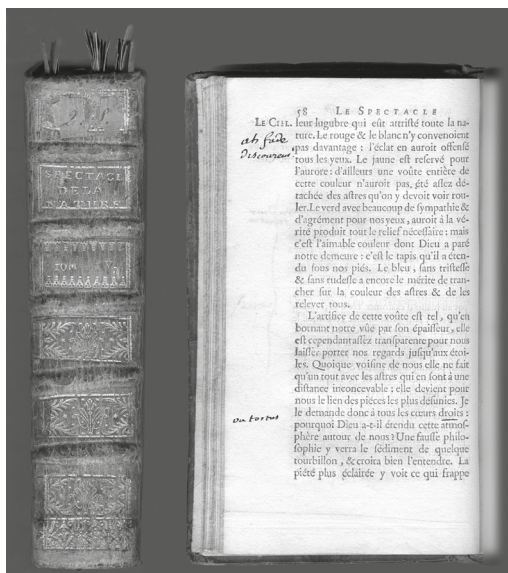 SPECTACL
DE LA
NATURE
TOM
58 LE SPECTACLE
LE CIEL. leur lugubre qui eût attriſté toute la na-
ture. Le rouge & le blanc n'y convenoient
pas davantage : l'éclat en auroit offenſé
tous les yeux. Le jaune eſt reſervé pour
l'aurore : d'ailleurs une voûte entière de
cette couleur n'auroit pas été aſſez dé-
tachée des aſtres qu'on y devoit voir rou-
ler. Le verd avec beaucoup de ſympathie &
d'agrément pour nos yeux, auroit à la vé-
rité produit tout le relief néceſſaire : mais
c'eſt l'aimable couleur dont Dieu a paré
notre demeure : c'eſt le tapis qu'il a éten-
du ſous nos piés. Le bleu, ſans triſteſſe
& ſans rudeſſe a encore le mérite de tran-
cher ſur la couleur des aſtres & de les
relever tous.
L'artifice de cette voûte eſt tel, qu'en
bornant notre vûe par ſon épaiſſeur, elle
eſt cependant aſſez tranſparente pour nous
laiſſer porter nos regards juſqu'aux étoi-
les. Quoique voiſine de nous elle ne fait
qu'un tout avec les aſtres qui en ſont à une
diſtance inconcevable : elle devient pour
nous le lien des piéces les plus déſunies. Je
le demande donc à tous les cœurs droits :
pourquoi Dieu a-t-il étendu cette atmoſ-
phère autour de nous ? Une fauſſe philo-
ſophie y verra le ſédiment de quelque
tourbillon, & croira bien l'entendre. La
piété plus éclairée y voit ce qui frappe
ah fade
Discoureur
ou tortus